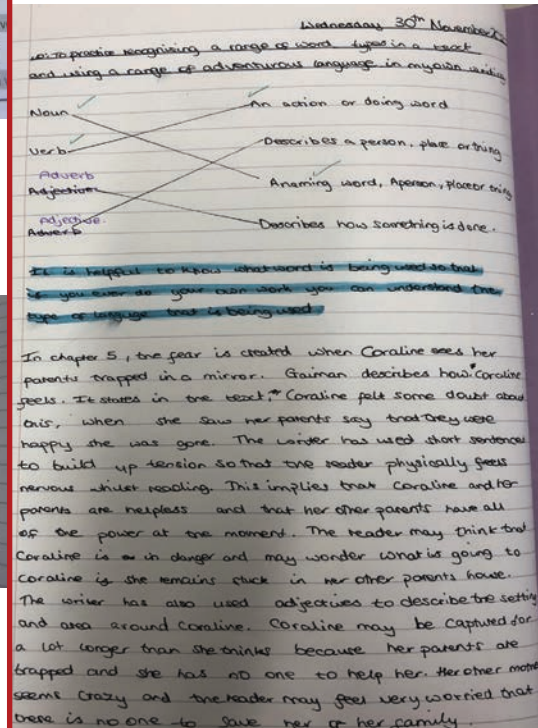 Wednesday 30th November
L.O: To practice recognising a range of word types in a text
and using a range of adventurous language in my own writing
Noun
An action or doing word
Verb
Describes a person, place or thing
Adverb
Adjective
A naming word, A person, place or thing
Adjective
Adverb
Describes how something is done.
It is helpful to know what word is being used so that
if you ever do your own work you can understand the
type of languge that is being used
In chapter 5, the fear is created when Coraline sees her
parents trapped in a mirror. Gaiman describes how "Coraline
feels. It states in the text, "Coraline felt some doubt about
this, when she saw her parents say that they were
happy she was gone. The writer has used short sentences
to build up tension so that the reader physically feels
nervous whilst reading. This implies that Coraline and her
parents are helpless and that her other parents have all
of the power at the moment. The reader may think that
Coraline is in danger and may wonder what is going to
Coraline if she remains stuck in her other parents house.
The writer has also used adjectives to describe the setting
and area around Coraline. Coraline may be captured for
a lot longer than she thinks because her parents are
trapped and she has no one to help her. Her other mother
seems crazy and the reader may feel very worried that
there is no one to save her or her family